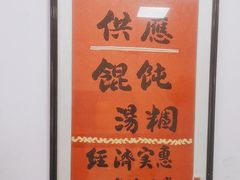 供應
餛飩
湯糰
經濟実惠